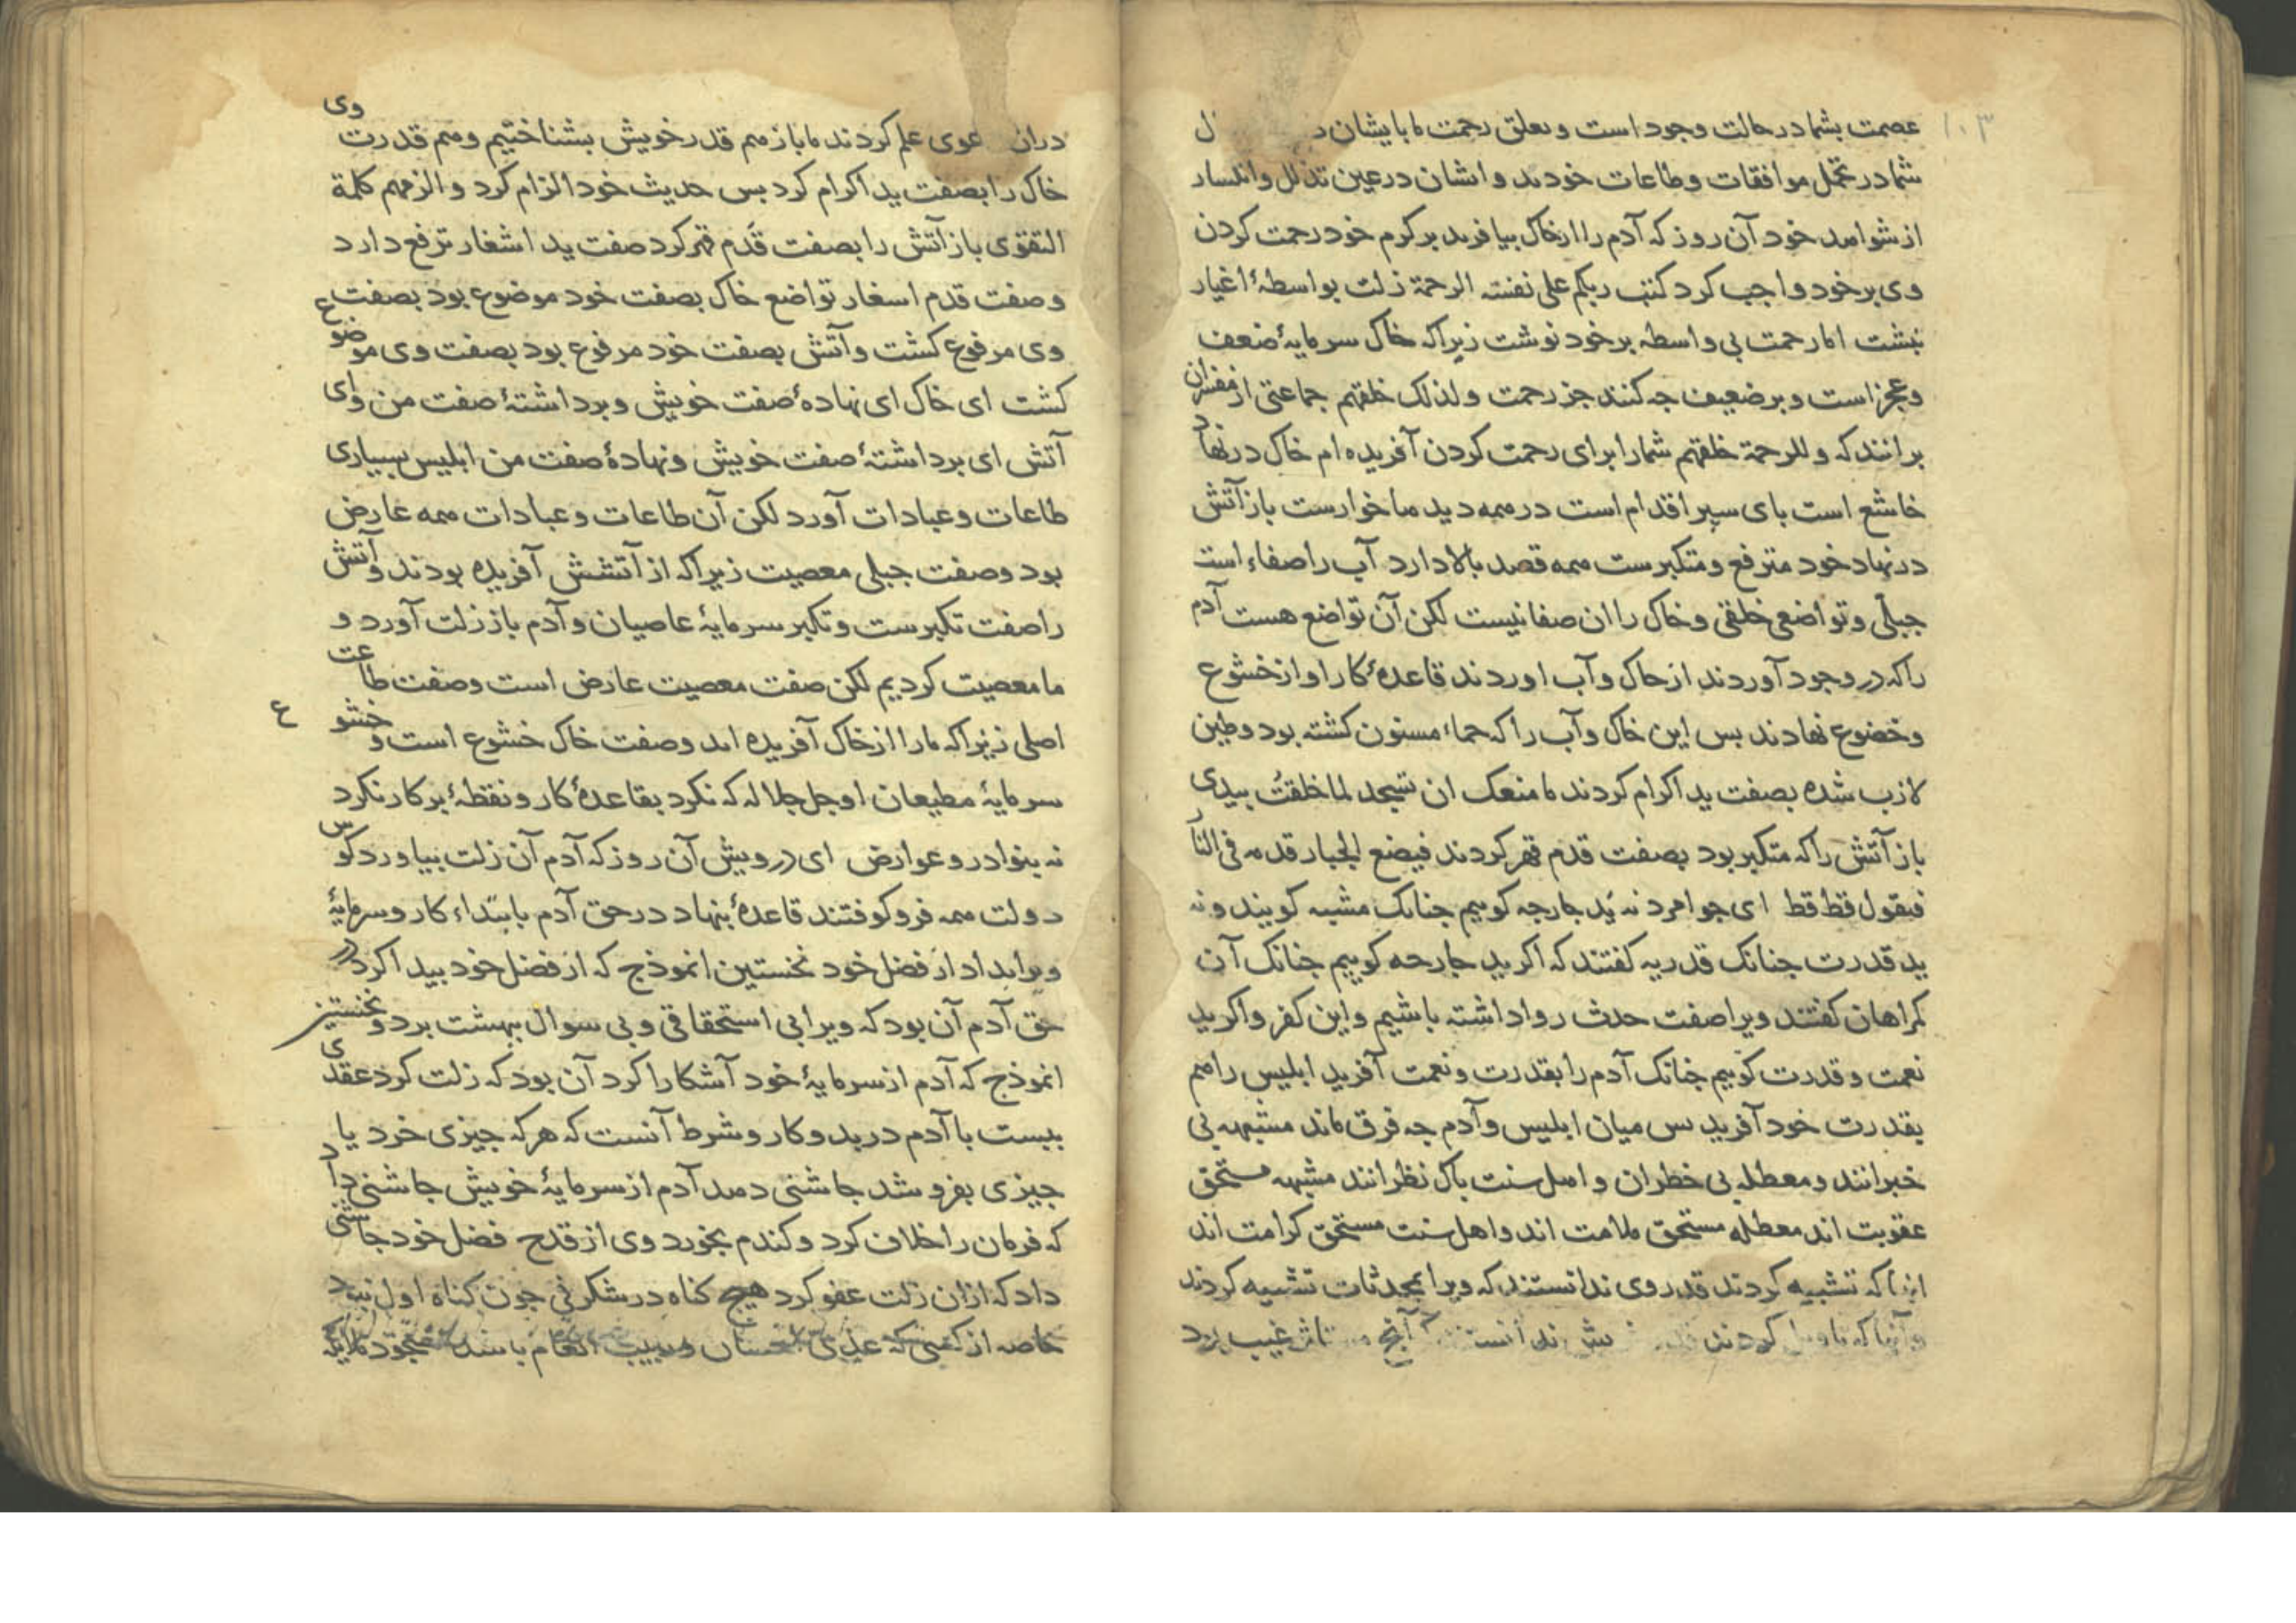 ۱۰۳
عصمت بشما در حالت وجود است و تعلق رحمت ما بایشان در
شما در تحمل موافقات و طاعات خودید و ایشان در عین تذلل و انکسار
از شواهد خود آن روز که آدم را از خاک بیافرید بر کرم خود رحمت کردن
وی بر خود واجب کرد کتب ربکم علی نفسه الرحمة زلت بواسطۀ اغیار
نبشت اما رحمت بی واسطه بر خود نوشت زیرا که خاک سرمایۀ ضعف
و عجز است و بر ضعیف جه کنند جز رحمت و لذلک خلقهم جماعتی از مفسران
برانند که و للرحمة خلقهم شما را برای رحمت کردن آفریده ام خاک در نهاد
خاشع است بای سپر اقدام است در همه دیدها خوارست باز آتش
در نهاد خود مترفع و متکبرست همه قصد بالا دارد آب را صفاء است
جبلّی و تواضعی خلقی و خاک را ان صفا نیست لکن آن تواضع هست آدم
را که در وجود آوردند از خاک و آب اوردند قاعدۀ کار او از خشوع
و خضوع نهادند بس این خاک و آب را که حماء مسنون کشته بود و طین
لازب شده بصفت ید اکرام کردند ما منعک ان تسجد لما خلقتُ بیدی
باز آتش را که متکبر بود بصفت قدم قهر کردند فیضع الجبار قدمه فی النار
فیقول قط قط ای جوامرد نه ید جارجه کوییم جنانک مشبه کویند و نه
ید قدرت جنانک قدریه کفتند که اکر ید جارحه کوییم جنانک آن
کمراهان کفتند ویرا صفت حدث روا داشته باشیم و این کفر و اکر ید
نعمت و قدرت کوییم جنانک آدم را بقدرت و نعمت آفرید ابلیس را هم
بقدرت خود آفرید بس میان ابلیس و آدم جه فرق ماند مشبهه بی
خبرانند و معطله بی خطران و اهل سنت باک نظرانند مشبهه مستحق
عقوبت اند معطله مستحق ملامت اند و اهل سنت مستحق کرامت اند
انها که تشبیه کردند قدر وی ندانستند که ویرا بمحدثات تشبیه کردند
و آنها که تاویل کردند ندانست آنج غیب برد
دران عوی علم کردند ما باز هم قدر خویش بشناختیم و هم قدرت وی
خاک را بصفت ید اکرام کرد بس حدیث خود الزام کرد و الزمهم کلمة
التقوی باز آتش را بصفت قَدم قهر کرد صفت ید اشغار ترفع دارد
و صفت قدم اسغار تواضع خاک بصفت خود موضوع بود بصفت
وی مرفوع کشت و آتش بصفت خود مرفوع بود بصفت وی موضوع
کشت ای خاک ای نهادۀ صفت خویش و برداشتۀ صفت من وای
آتش ای برداشتۀ صفت خویش و نهادۀ صفت من ابلیس بسیاری
طاعات و عبادات آورد لکن آن طاعات و عبادات همه عارض
بود و صفت جبلی معصیت زیرا که از آتشش آفریده بودند و آتش
را صفت تکبرست و تکبر سرمایۀ عاصیان و آدم باز زلت آورد و
ما معصیت کردیم لکن صفت معصیت عارض است و صفت طاعت
اصلی زیرا که ما را از خاک آفریده اند و صفت خاک خشوع است و خشوع
سرمایۀ مطیعان او جل جلاله که نکرد بقاعدۀ کار و نقطۀ برکار نکرد
نه بنوادر و عوارض ای درویش آن روز که آدم آن زلت بیاورد کوس
دولت همه فرو کوفتند قاعدۀ بنهاد در حق آدم بابتداء کار و سرمایۀ
ویرا بداد از فضل خود نخستین انموذج که از فضل خود بیدا کرد در
حق آدم آن بود که ویرا بی استحقاقی و بی سوال ببهشت برد و نخستین
انموذج که آدم از سرمایۀ خود آشکارا کرد آن بود که زلت کرد عقدی
ببست با آدم در بدو کار و شرط آنست که هر که جیزی خرد یا
جیزی بفروشد جاشنی دهد آدم از سرمایۀ خویش جاشنی داد
که فرمان را خلاف کرد و کندم بخورد وی از قدح فضل خود جاشنی
داد که ازان زلت عفو کرد هیچ کناه در شکرفی جون کناه اول نبود
خاصه از کسی که انعام باشد